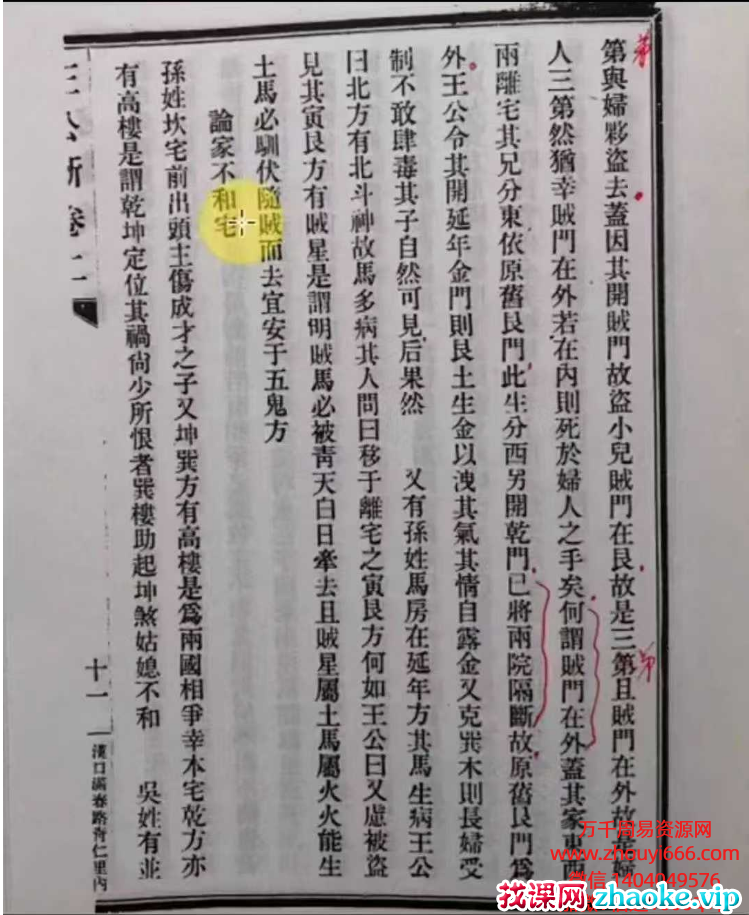 第與婦夥盜去蓋因其開賊門故盜小兒賊門在艮故是三第且賊門在外故是婦
人三第然猶幸賊門在外若在內則死於婦人之手矣何謂賊門在外蓋其家東西
兩離宅其兄分東依原舊艮門此生分西另開乾門已將兩院隔斷故原舊艮門爲
外王公令其開延年金門則艮土生金以洩其氣其情自露金又克巽木則長婦受
制不敢肆毒其子自然可見后果然 又有孫姓馬房在延年方其馬生病王公
曰北方有北斗神故馬多病其人問曰移于離宅之寅艮方何如王公曰又慮被盜
見其寅艮方有賊星是謂明賊馬必被靑天白日牽去且賊星屬土馬屬火火能生
土馬必馴伏隨賊而去宜安于五鬼方
論家不和宅
孫姓坎宅前出頭主傷成才之子又坤巽方有高樓是爲兩國相爭幸本宅乾方亦
有高樓是謂乾坤定位其禍尙少所恨者巽樓助起坤煞姑媳不和 吳姓有並
王公斷卷二
十一
漢口滿春路靑仁里內
弟
弟
万千周易资源网
www.zhouyi666.com
微信 1404049576
找课网 zhaoke.vip